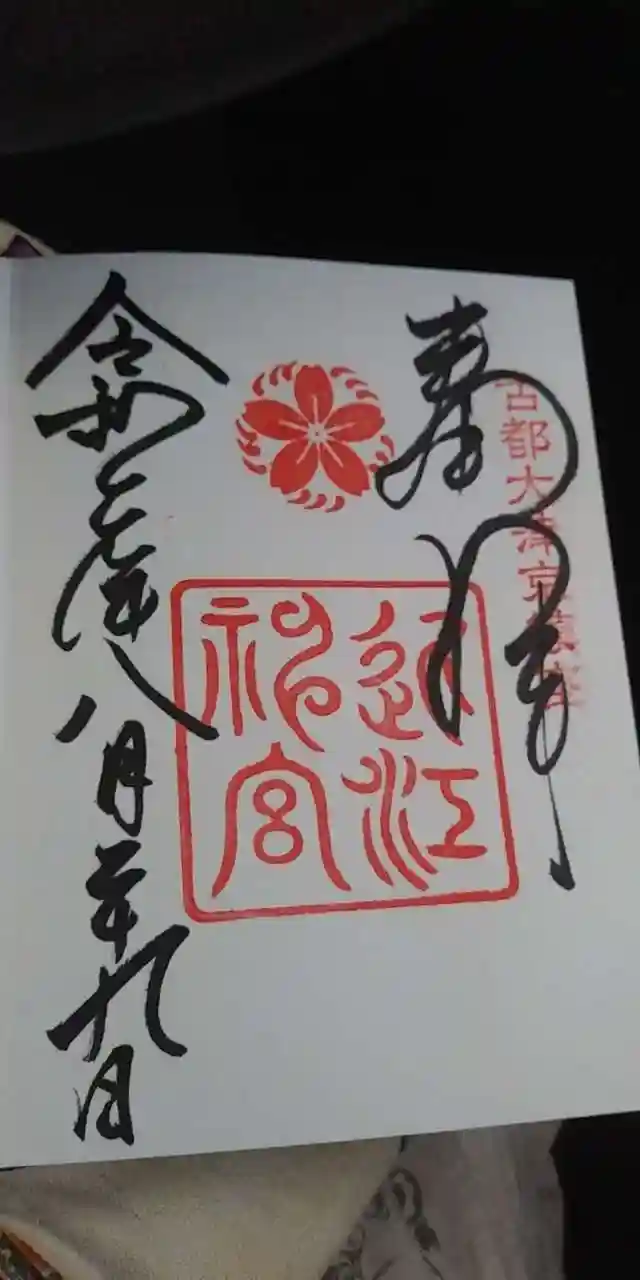 古都大津京鎮座
奉拝
近江
神宮
令和年八月二十九日